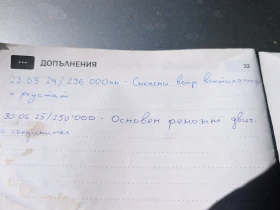 ... ДОПЪЛНЕНИЯ 33
23.05 24/236'000км - Сменени вътр
и
30.06.25/250'000 - Основен ремонт двиг.
и